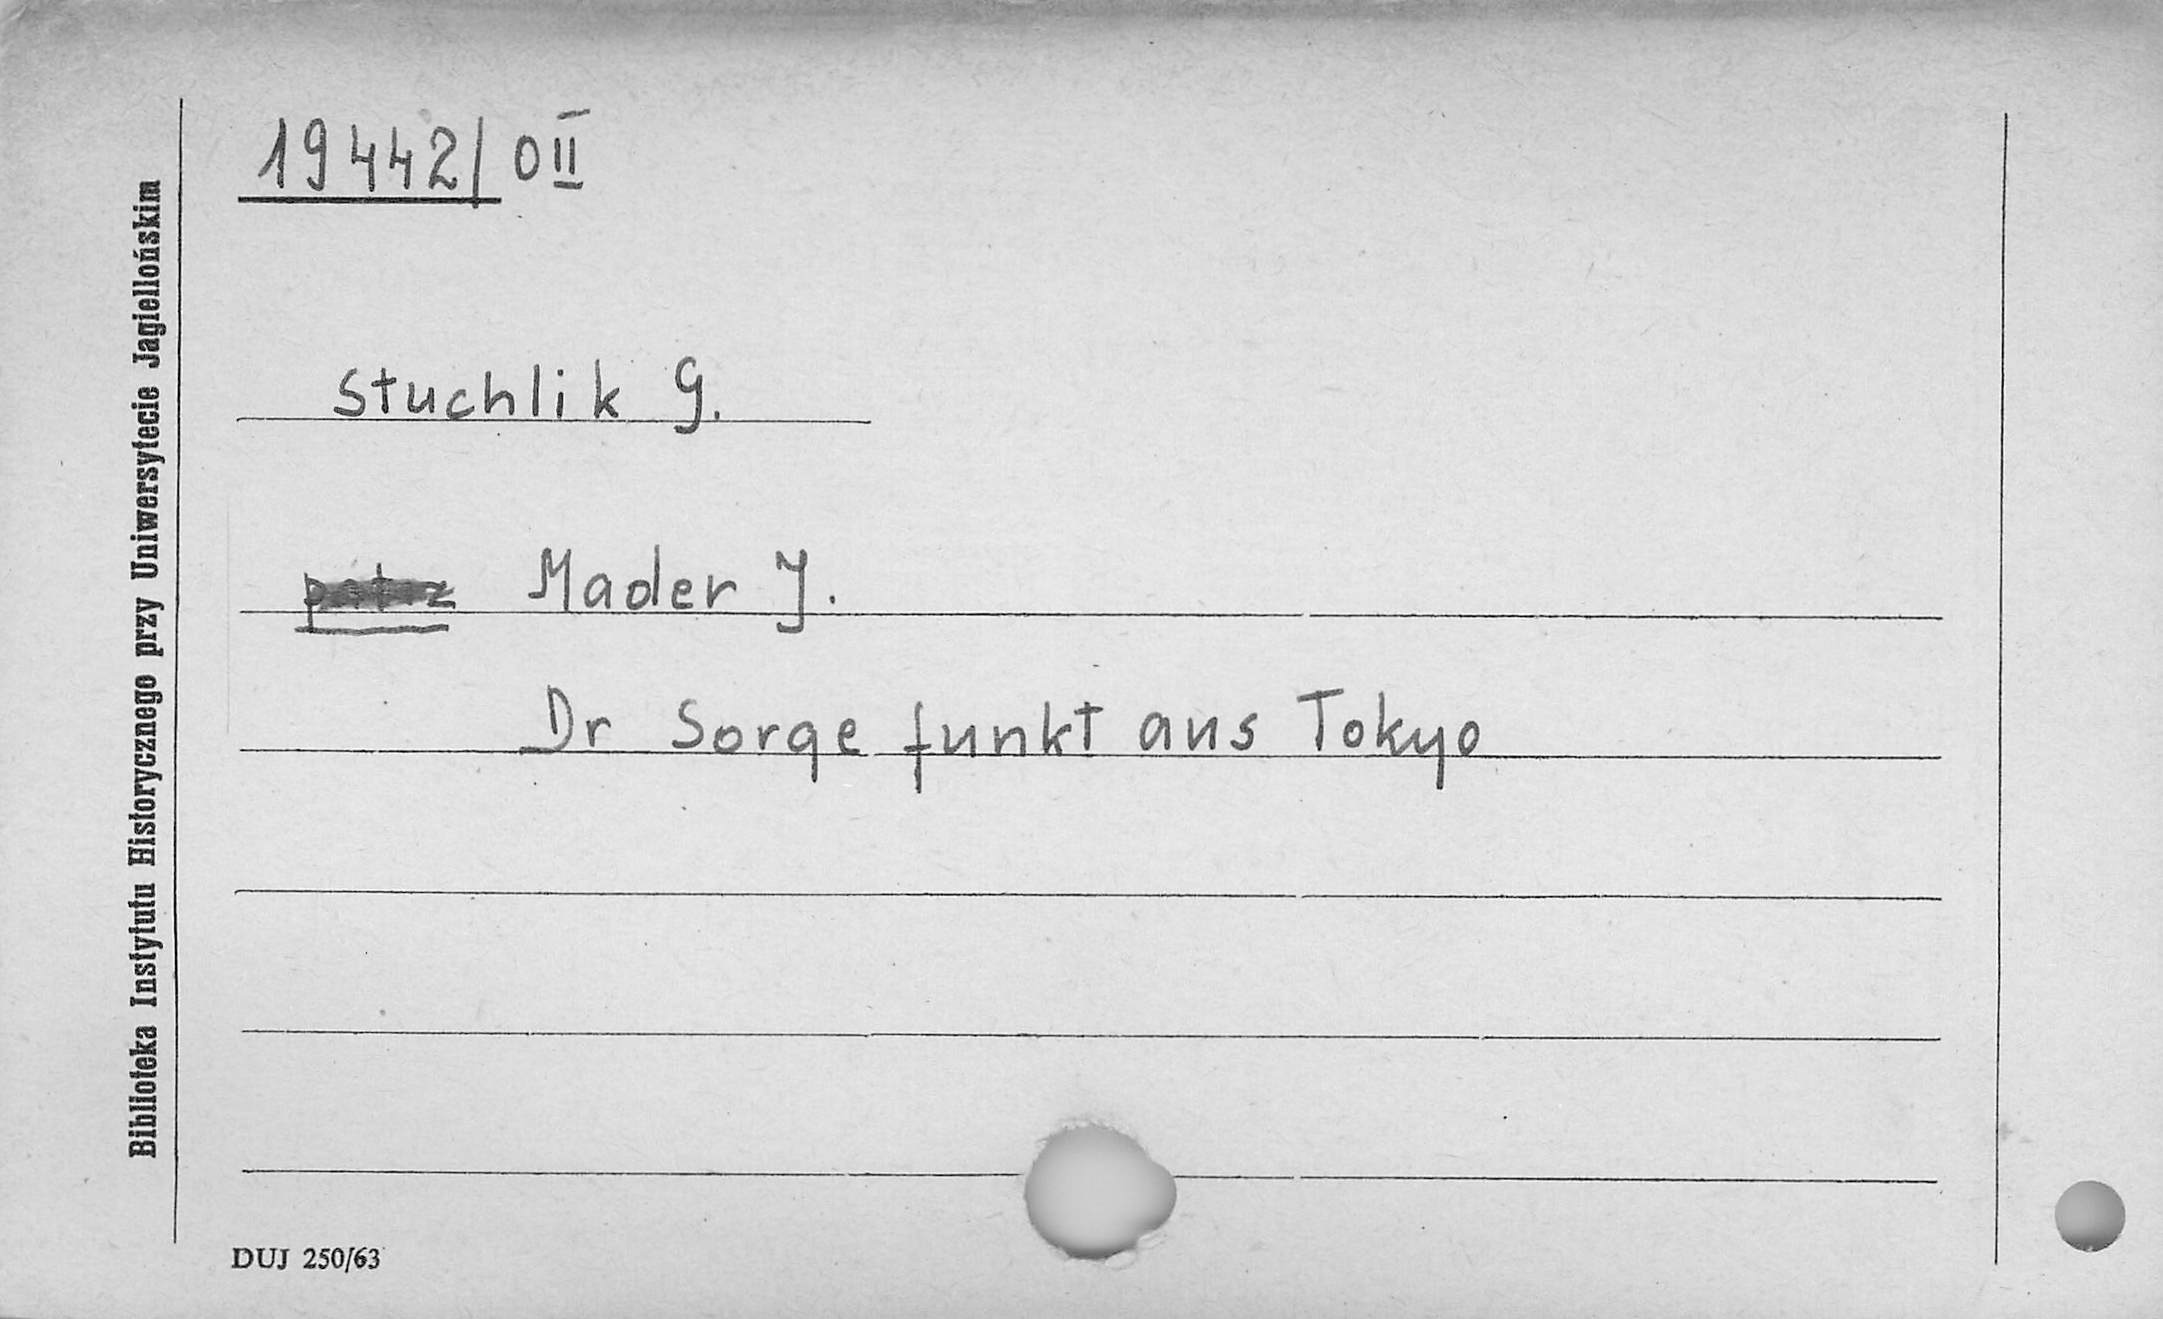 19442/0II
Stuchlik G.
patrz Mader J.
Dr Sorge funkt aus Tokyo
Biblioteka Instytutu Historycznego przy Uniwersytecie Jagiellońskim
DUJ 250/63